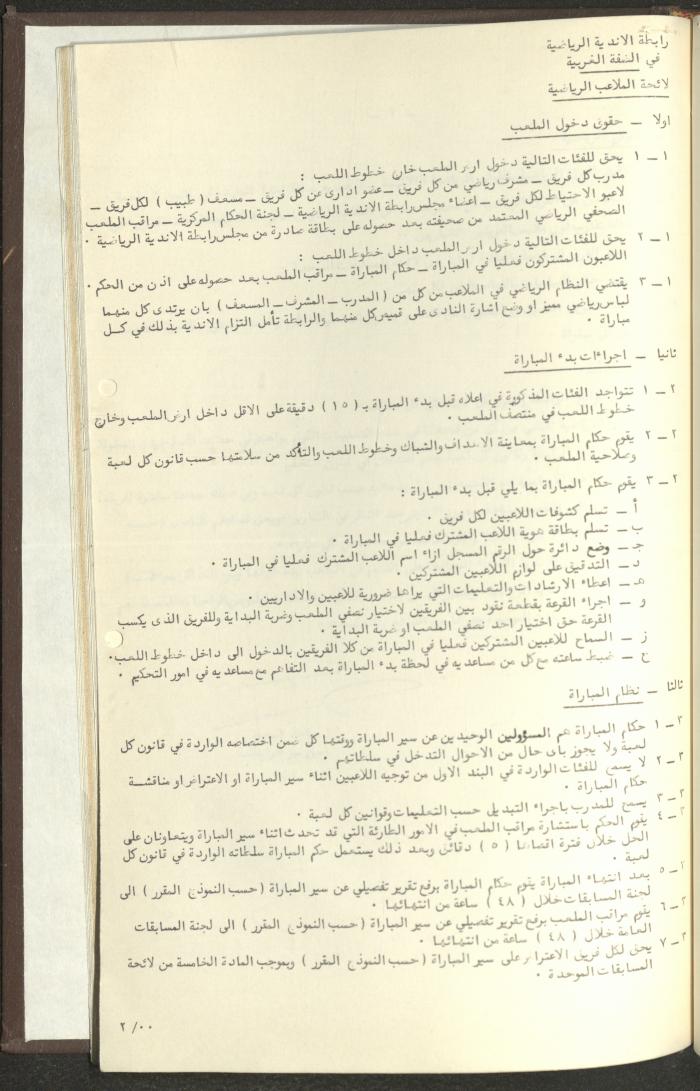 رابطة الاندية الرياضية
في الضفة الغربية
لائحة الملاعب الرياضية
اولا ــ حقوق دخول الملعب
١ ــ ١ يحق للفئات التالية دخول ارض الملعب خارج خطوط اللعب :
مدرب كل فريق ــ مشرف رياضي من كل فريق ــ عضو اداري عن كل فريق ــ مسعف ( طبيب ) لكل فريق ــ
لاعبو الاحتياط لكل فريق ــ اعضاء مجلس رابطة الاندية الرياضية ــ لجنة الحكام المركزية ــ مراقب الملعب
الصحفي الرياضي المعتمد من صحيفته بعد حصوله على بطاقة صادرة من مجلس رابطة الاندية الرياضية .
١ ــ ٢ يحق للفئات التالية دخول ارض الملعب داخل خطوط اللعب :
اللاعبون المشتركون فعليا في المباراة ــ حكام المباراة ــ مراقب الملعب بعد حصوله على اذن من الحكم .
١ ــ ٣ يقتضي النظام الرياضي في الملاعب من كل من ( المدرب ــ المشرف ــ المسعف ) بان يرتدى كل منهما
لباس رياضي مميز او وضع اشارة النادى على قميص كل منهما والرابطة تأمل التزام الاندية بذلك في كــل
مباراة .
ثانيا ــ اجراءات بدء المباراة
٢ ــ ١ تتواجد الفئات المذكورة في اعلاه قبل بدء المباراة بـ ( ١٥ ) دقيقة على الاقل داخل ارض الملعب وخارج
خطوط اللعب في منتصف الملعب .
٢ ــ ٢ يقوم حكام المباراة بمعاينة الاهداف والشباك وخطوط اللعب والتأكد من سلامتها حسب قانون كل لعبة
وصلاحية الملعب .
٢ ــ ٣ يقوم حكام المباراة بما يلي قبل بدء المباراة :
أ ــ تسلم كشوفات اللاعبين لكل فريق .
ب ــ تسلم بطاقة هوية اللاعب المشترك فعليا في المباراة .
جـ ــ وضع دائرة حول الرقم المسجل ازاء اسم اللاعب المشترك فعليا في المباراة .
د ــ التدقيق على لوازم اللاعبين المشتركين .
هـ ــ اعطاء الارشادات والتعليمات التي يراها ضرورية للاعبين والاداريين .
و ــ اجراء القرعة بقطعة نقود بين الفريقين لاختيار نصفي الملعب وضربة البداية وللفريق الذى يكسب
القرعة حق اختيار احد نصفي الملعب او ضربة البداية .
ز ــ السماح للاعبين المشتركين فعليا في المباراة من كلا الفريقين بالدخول الى داخل خطوط اللعب.
ح ــ ضبط ساعته مع كل من مساعديه في لحظة بدء المباراة بعد التفاهم مع مساعديه في امور التحكيم .
ثالثا ــ نظام المباراة
٣ ــ ١ حكام المباراة هم المسؤولين الوحيدين عن سير المباراة ووقتها كل ضمن اختصاصه الواردة في قانون كل
لعبة ولا يجوز باى حال من الاحوال التدخل في سلطاتهم .
٣ ــ ٢ لا يسمح للفئات الواردة في البند الاول من توجيه اللاعبين اثناء سير المباراة او الاعتراض او مناقشــة
حكام المباراة .
٣ ــ ٣ يسمح للمدرب باجراء التبديل حسب التعليمات وقوانين كل لعبة .
٣ ــ ٤ يقوم الحكم باستشارة مراقب الملعب في الامور الطارئة التي قد تحدث اثناء سير المباراة ويتعاونان على
الحل خلال فترة اقصاها ( ٥ ) دقائق وبعد ذلك يستعمل حكم المباراة سلطاته الواردة في قانون كل
لعبة .
٣ ــ ٥ بعد انتهاء المباراة يقوم حكام المباراة برفع تقرير تفصيلي عن سير المباراة ( حسب النموذج المقرر ) الى
لجنة المسابقات خلال ( ٤٨ ) ساعة من انتهائها .
٣ ــ ٦ يقوم مراقب الملعب برفع تقرير تفصيلي عن سير المباراة ( حسب النموذج المقرر ) الى لجنة المسابقات
العامة خلال ( ٤٨ ) ساعة من انتهائها .
٣ ــ ٧ يحق لكل فريق الاعتراض على سير المباراة ( حسب النموذج المقرر ) وبموجب المادة الخامسة من لائحة
المسابقات الموحدة .
٢ / ٠٠